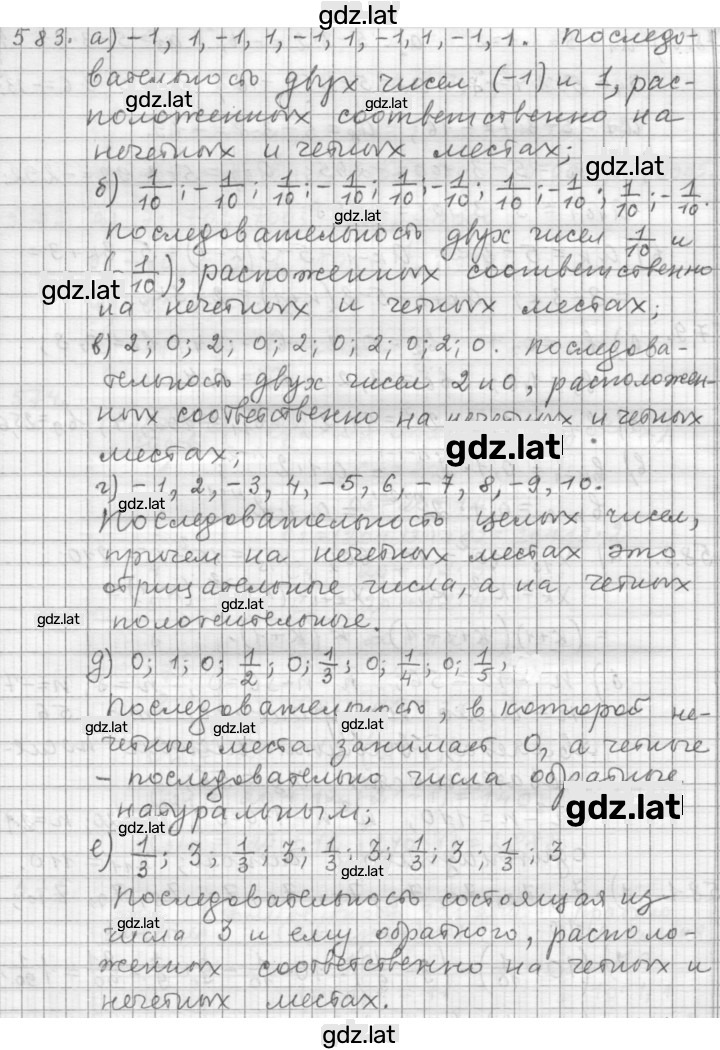 gdz.lat
583. а) -1, 1, -1, 1, -1, 1, -1, 1, -1, 1. Последо-
вательность двух чисел (-1) и 1, рас-
gdz.lat gdz.lat
положенных соответственно на
нечетных и четных местах;
gdz.lat
б) 1/10; -1/10; 1/10; -1/10; 1/10; -1/10; 1/10; -1/10; 1/10; -1/10.
gdz.lat
Последовательность двух чисел 1/10 и
(-1/10), расположенных соответственно
gdz.lat
на нечетных и четных местах;
в) 2; 0; 2; 0; 2; 0; 2; 0; 2; 0. Последова-
тельность двух чисел 2 и 0, расположен-
ных соответственно на нечетных и четных
gdz.lat
местах;
г) -1, 2, -3, 4, -5, 6, -7, 8, -9, 10.
gdz.lat
Последовательность целых чисел,
причем на нечетных местах это
отрицательные числа, а на четных
gdz.lat
gdz.lat
положительные.
д) 0; 1; 0; 1/2; 0; 1/3; 0; 1/4; 0; 1/5;
Последовательность, в которой не-
gdz.lat gdz.lat gdz.lat
четные места занимает 0, а четные
- последовательно числа обратные
gdz.lat
натуральным;
gdz.lat
е) 1/3; 3, 1/3; 3; 1/3; 3; 1/3; 3; 1/3; 3
gdz.lat
Последовательность состоящая из
gdz.lat
числа 3 и ему обратного, располо-
женных соответственно на четных и
нечетных местах.
gdz.lat